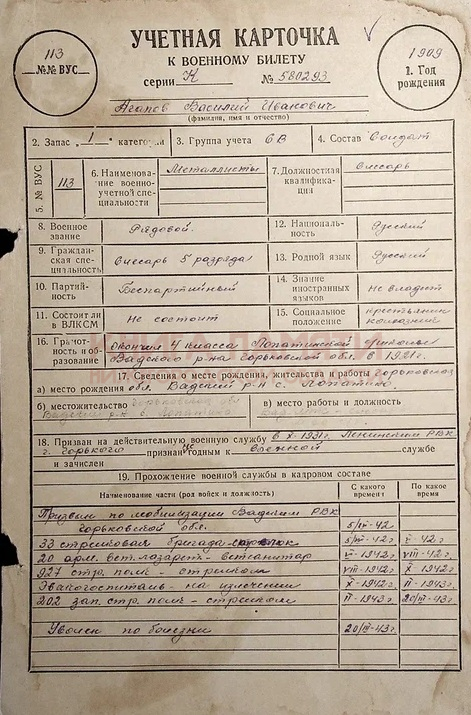 УЧЕТНАЯ КАРТОЧКА
К ВОЕННОМУ БИЛЕТУ
серии К № 580293
113
№№ ВУС
1909
1. Год
рождения
Агапов Василий Иванович
(фамилия, имя и отчество)
2. Запас „1“ категории 3. Группа учета 6В 4. Состав Солдат
5. № ВУС 113
6. Наименование военно-учетной специальности Металлисты
7. Должностная квалификация Слесарь
8. Военное звание Рядовой.
12. Национальность Русский
9. Гражданская специальность Слесарь 5 разряда
13. Родной язык Русский
10. Партийность Беспартийный
14. Знание иностранных языков Не владеет
11. Состоял ли в ВЛКСМ Не состоит
15. Социальное положение крестьянин колхозник
16. Грамотность и образование Окончил 4 класса Лопатинской
Вадского р-на Горьковской обл. в 1921 г.
17. Сведения о месте рождения, жительства и работы Горьковская
а) место рождения обл. Вадский р-н с. Лопатино.
б) местожительство Горьковская обл
Вадский р-н с. Лопатино
в) место работы и должность
18. Призван на действительную военную службу в X-1931 г. Ленинским РВК
г. Горького признан годным к службе
и зачислен
19. Прохождение военной службы в кадровом составе
Наименование части (род войск и должность)
С какого времени
По какое время
Призван по мобилизации Вадским РВК
Горьковской обл.
33 стрелковая бригада стрелок
20 арм. вет. лазарет - ветсанитар VI-1942 г VIII-1942 г
927 стр. полк - стрелком VIII-1942 г X-1942 г
Эвакогоспиталь - на излечении X-1942 г II-1943 г
202 зап. стр. полк - стрелком II-1943 г
Уволен по болезни